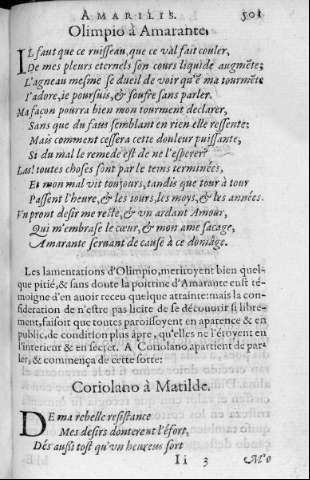 AMARILIS. 501
Olimpio à Amarante.
IL faut que ce ruisseau, que ce val fait couler,
De mes pleurs eternels son cours liquide augmẽte;
L'agneau mesme se dueil de voir qu'ẽ ma tourmẽte
I'adore, ie poursuis, & soufre sans parler.
Ma façon pourra bien mon tourment declarer,
Sans que du faus semblant en rien elle ressente:
Mais comment cessera cette douleur puissante,
Si du mal le remede est de ne l'esperer?
Las! toutes choses sont par le tems terminées,
Et mon mal vit toujours, tandis que tour à tour
Passent l'heure, & les iours, les moys, & les années.
Vn pront desir me reste, & vn ardant Amour,
Qui m'embrase le cœur, & mon ame sacage,
Amarante seruant de cause à ce domãge.
Les lamentations d'Olimpio, meritoyent bien quel-
que pitié, & sans doute la poitrine d'Amarante eust té-
moigne d'en auoir receu quelque atrainte: mais la con-
sideration de n'estre pas licite de se découurir si libre-
ment, faisoit que toutes paroissoyent en aparence & en
public, de condition plus âpre, qu'elles ne l'étoyent en
l'interieur & en secret. A Coriolano apartient de par-
ler, & commença de cette sorte:
Coriolano à Matilde.
DE ma rebelle resistance
Mes desirs donterent l'éfort,
Dés aussi tost qu'vn heureus sort
Ii 3 Mo